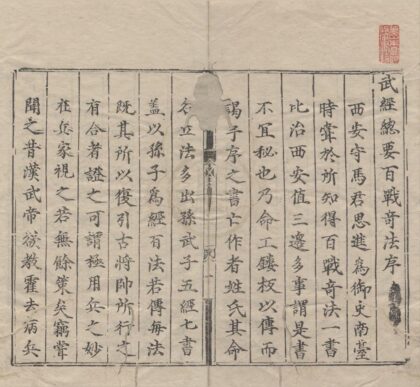 武經總要百戰奇法序
西安守馬君思進為御史南臺
時嘗於所知得百戰奇法一書
比治西安值三邊多事謂是書
不宜秘也乃命工鏤板以傳而
謁予序之書亡作者姓氏其命
名立法多出孫武子五經七書
蓋以孫子為經百法若傳每法
既其所以復引古將帥所行之
有合者證之可謂極用兵之妙
在兵家視之若無餘策矣竊嘗
聞之昔漢武帝欲教霍去病兵